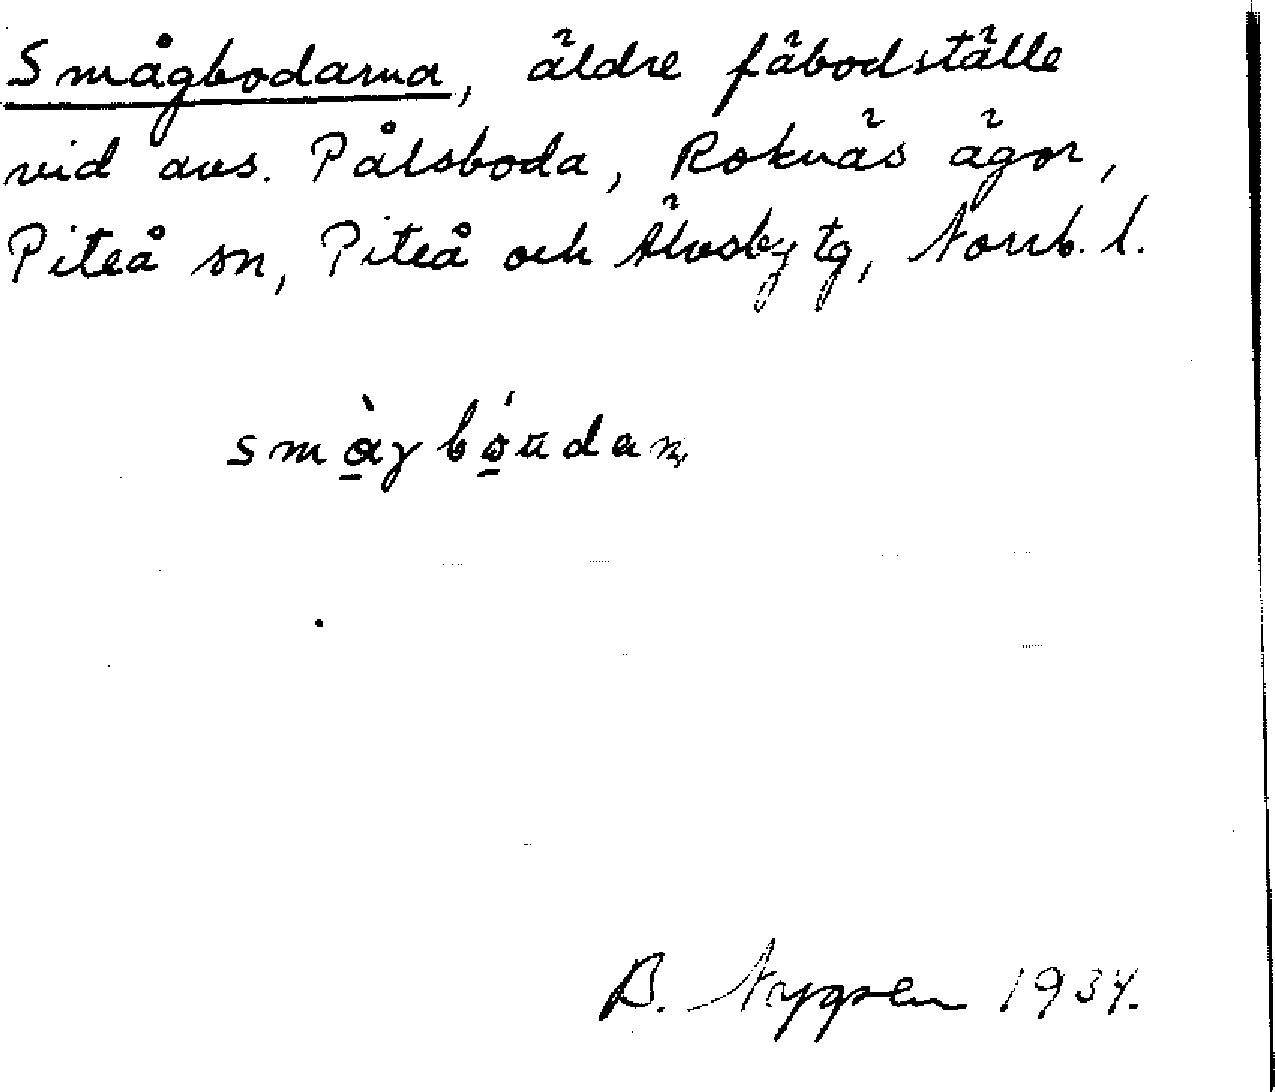 Smågbodarna, äldre fäbodställe
vid avs. Pålsboda, Roknäs ägor,
Piteå sn, Piteå och Älvsby tg, Norrb. l.
B. Nygren 1934.